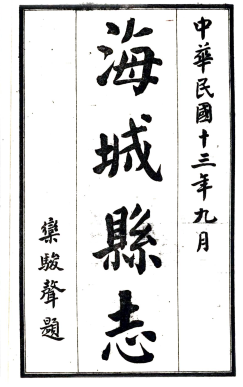 中華民國十三年九月
海城縣志
欒駿聲題